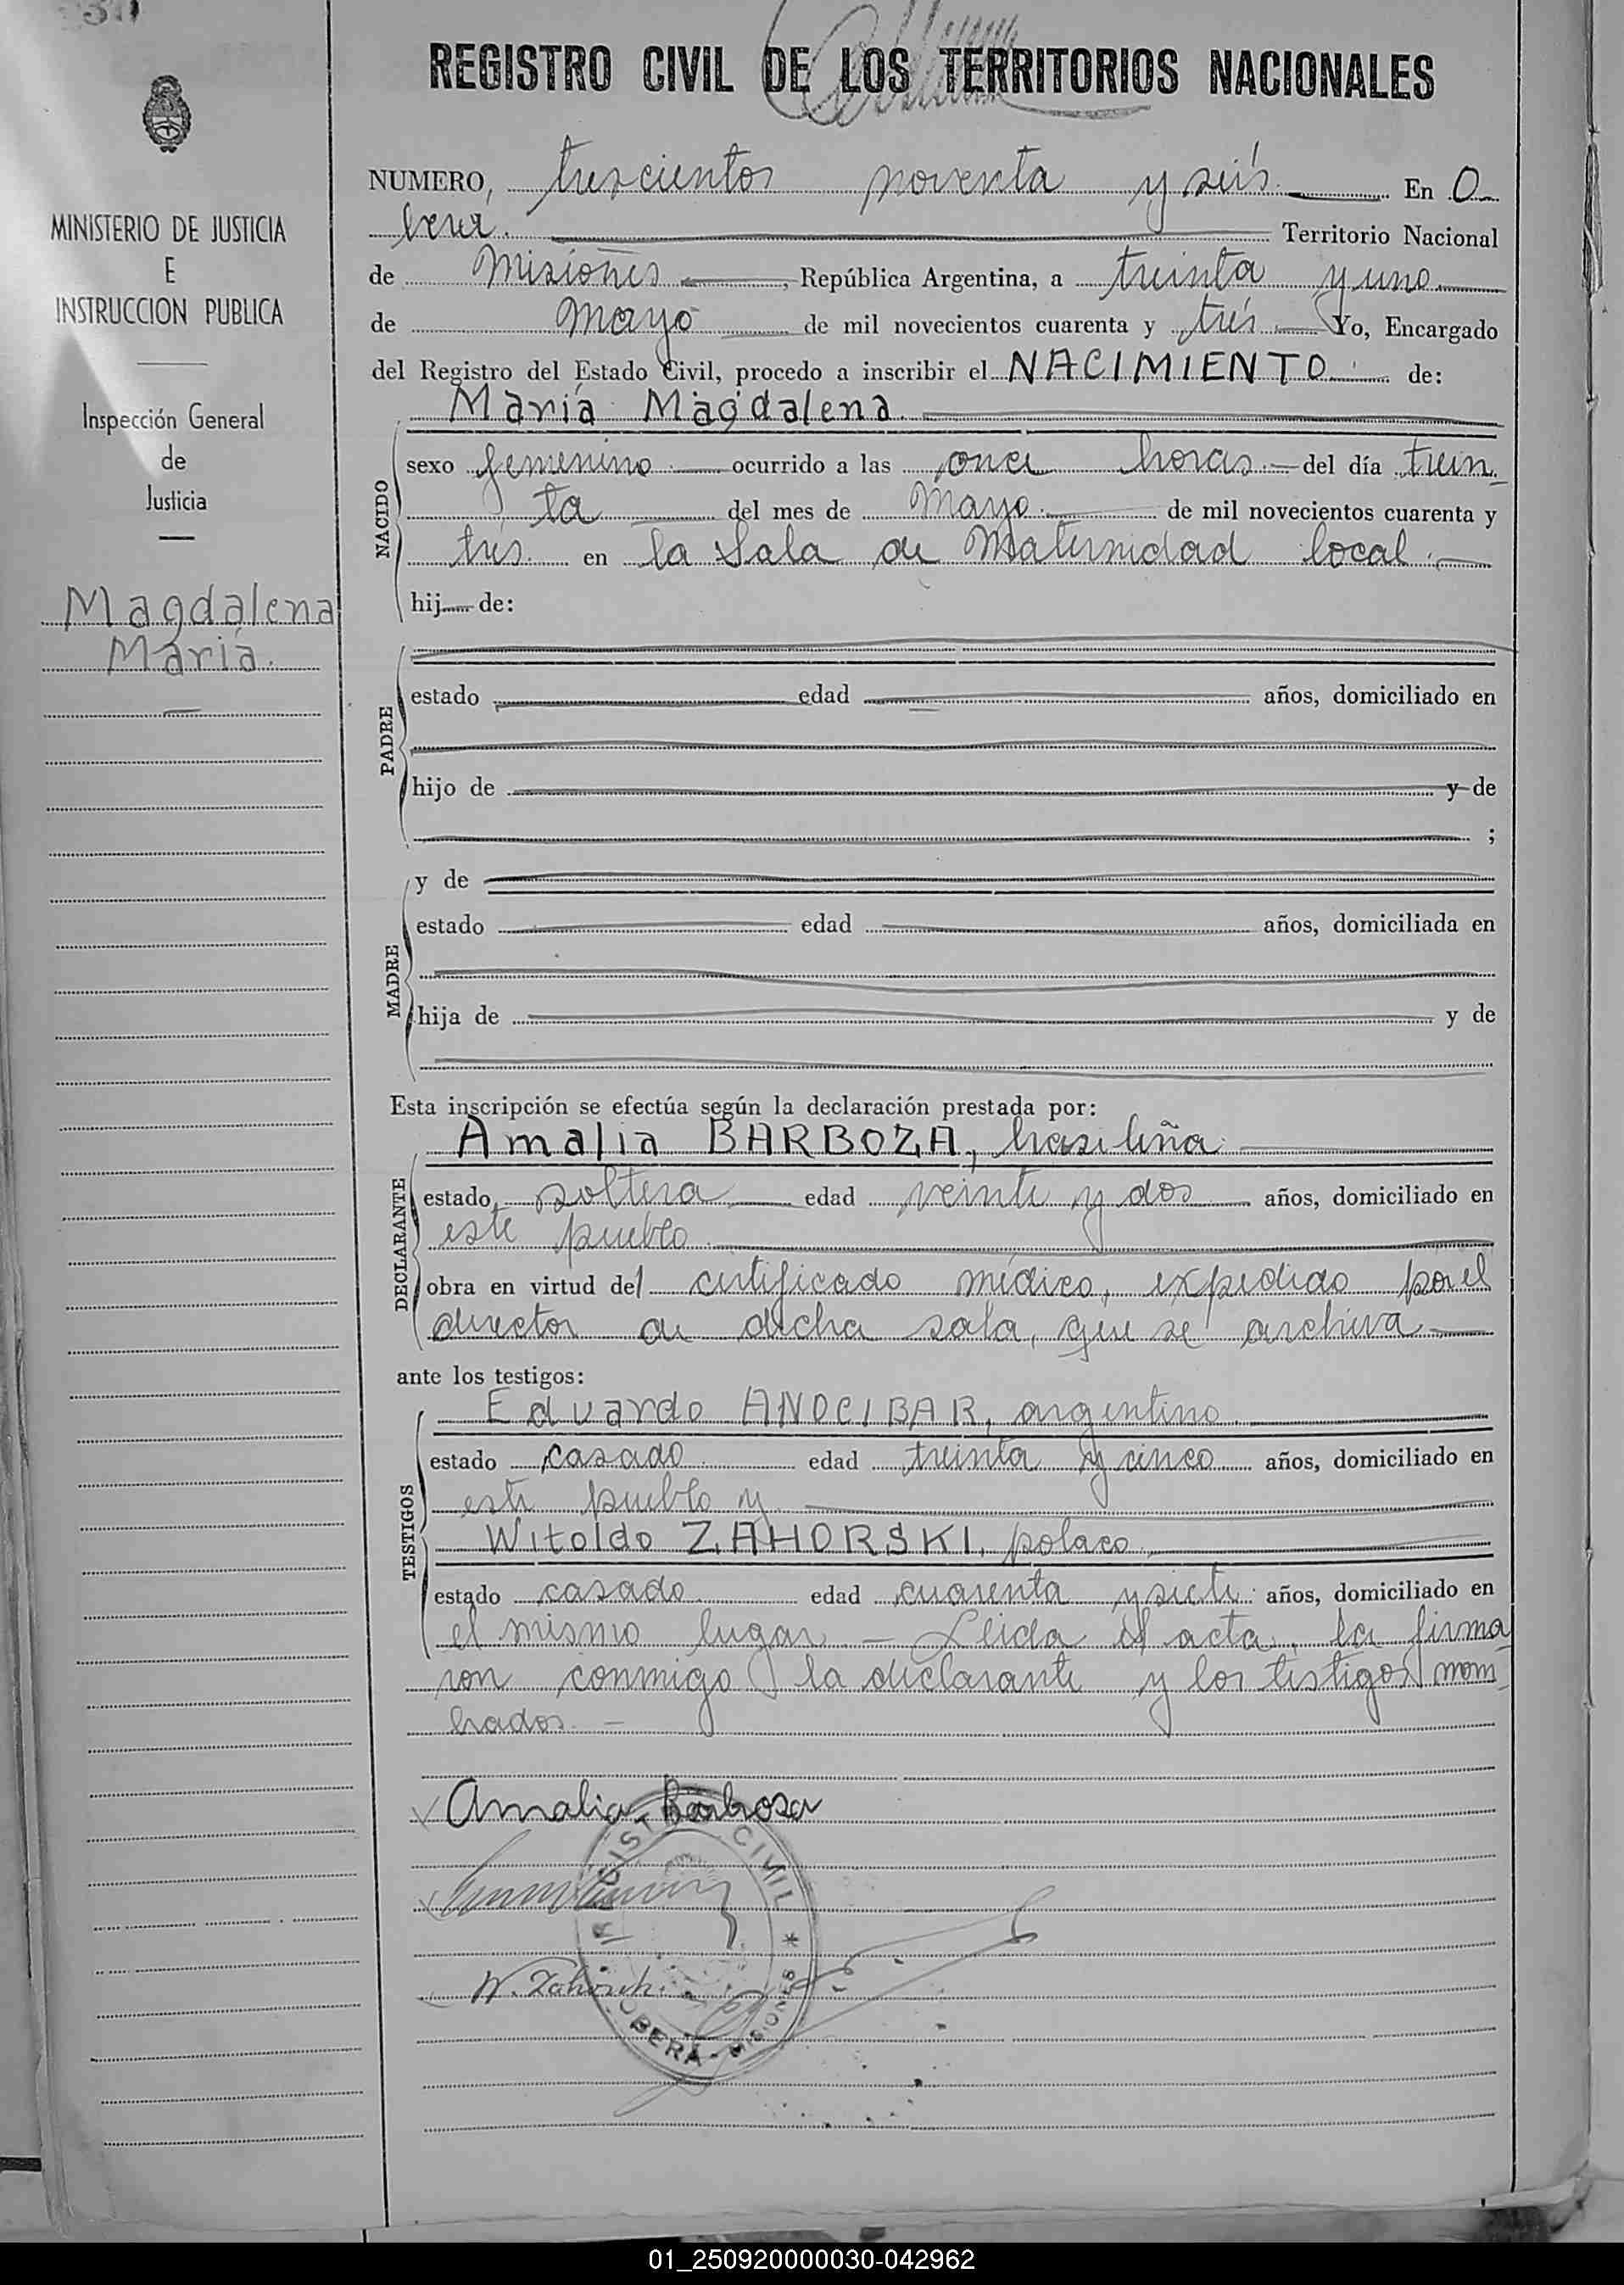 REGISTRO CIVIL DE LOS TERRITORIOS NACIONALES
MINISTERIO DE JUSTICIA
E
INSTRUCCION PUBLICA
Inspección General
de
Justicia
Magdalena
María.
NUMERO, trescientos noventa y seis. En O
berá. Territorio Nacional
de Misiones, República Argentina, a treinta y uno
de Mayo de mil novecientos cuarenta y trés Yo, Encargado
del Registro del Estado Civil, procedo a inscribir el NACIMIENTO de:
María Magdalena.
NACIDO
sexo femenino ocurrido a las once horas. del día trein
ta del mes de Mayo de mil novecientos cuarenta y
trés. en la Sala de Maternidad local.
hij de:
PADRE
estado edad años, domiciliado en
hijo de y de
;
MADRE
y de
estado edad años, domiciliada en
hija de y de
Esta inscripción se efectúa según la declaración prestada por:
DECLARANTE
Amalia BARBOZA, brasileña
estado soltera edad veinte y dos años, domiciliado en
este pueblo
obra en virtud del certificado médico, expedido por el
director de dicha sala, que se archiva
ante los testigos:
TESTIGOS
Eduardo ANOCIBAR, argentino.
estado casado edad treinta y cinco años, domiciliado en
este pueblo y
Witoldo ZAHORSKI, polaco
estado casado edad cuarenta y siete años, domiciliado en
el mismo lugar. — Leida el acta, la firma
ron conmigo la declarante y los testigos nom
brados. —
Amalia Barbosa
REGISTRO CIVIL
W. Zahorski
OBERA - MISIONES
01_250920000030-042962